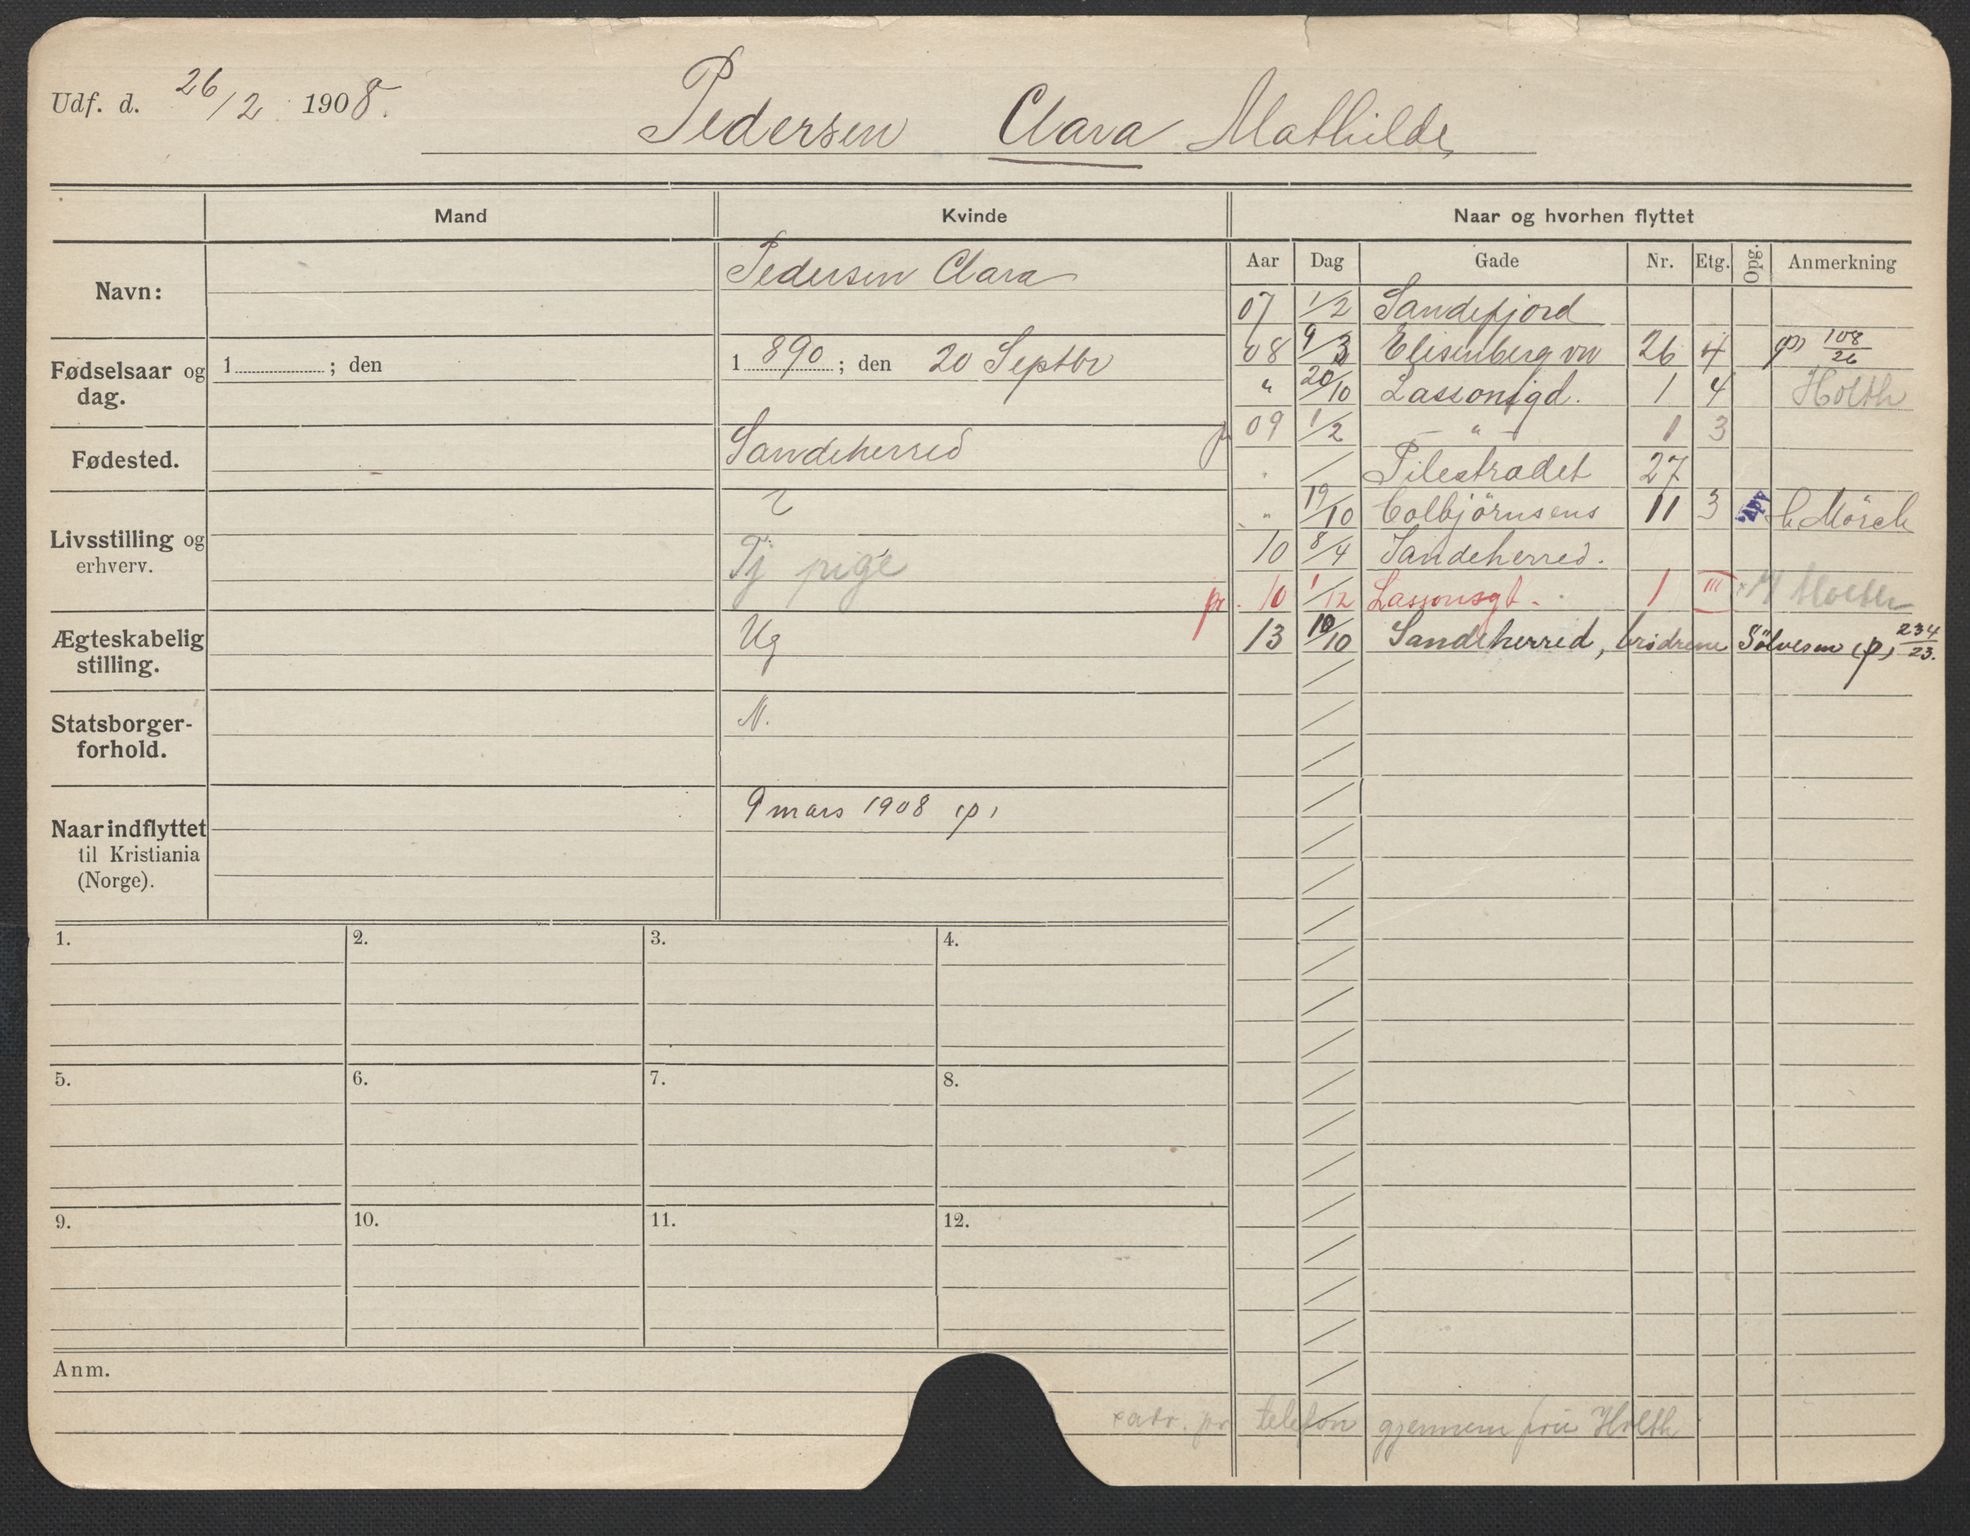 Udf. d. 26/2 1908.
Pedersen Clara Mathilde
Mand
Kvinde
Naar og hvorhen flyttet
Navn:
Pedersen Clara
Fødselsaar og dag.
1 ; den
1 890 ; den 20 Septbr
Fødested.
Sandeherred
Livsstilling og erhverv.
Tj pige
Ægteskabelig stilling.
Ug
Statsborger-forhold.
N.
Naar indflyttet til Kristiania (Norge).
9 mars 1908 (p)
Aar Dag Gade Nr. Etg. Opg. Anmerkning
07 1/2 Sandefjord
08 9/3 Elisenberg vn 26 4 (p) 108/26
" 20/10 Lassonsgd. 1 4 Holth
p 09 1/2 — " — 1 3
" / Pilestrædet 27
" 19/10 Colbjørnsens 11 3 Mörch
10 8/4 Sandeherred.
pr. 10 1/12 Lassonsgt. 1 III × Holth
13 10/10 Sandeherred, brødrene Sölvesen (p) 234/23.
1.
2.
3.
4.
5.
6.
7.
8.
9.
10.
11.
12.
Anm.
× adr. pr telefon gjennem fru Holth